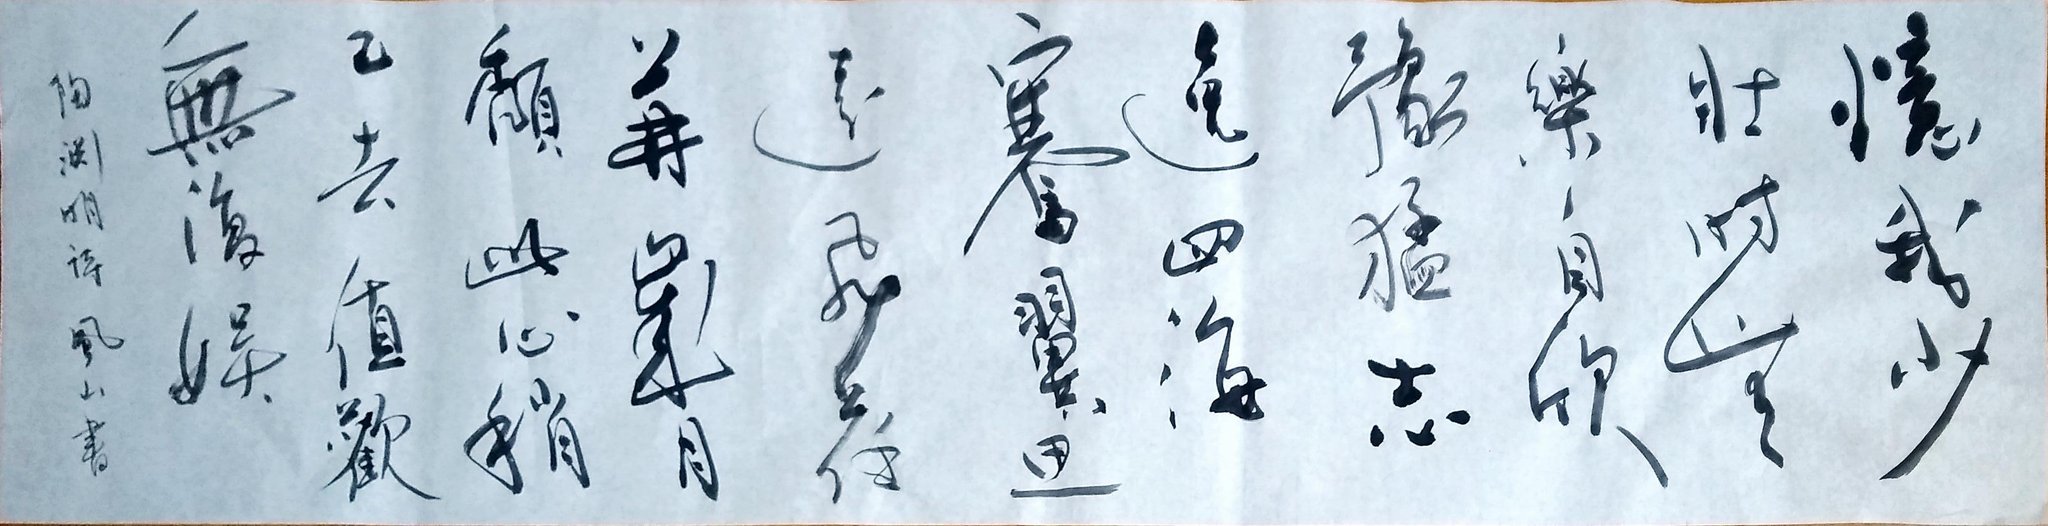 憶我少
壯時无
樂自欣
豫猛志
逸四海
騫翼思
遠飛荏
苒歲月
頹此心稍
已去值歡
無復娱
陶渕明詩 風山書